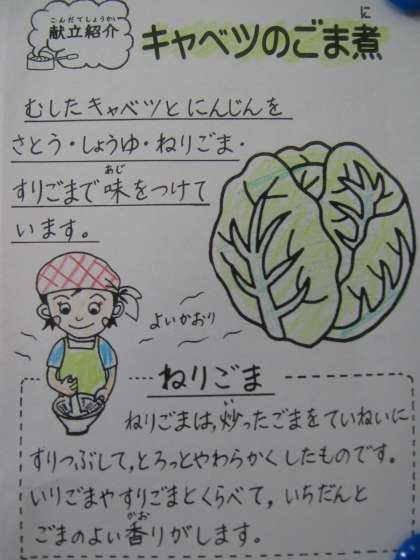 こんだてしょうかい
献立紹介
に
キャベツのごま煮
むしたキャベツとにんじんを
さとう・しょうゆ・ねりごま・
あじ
すりごまで味をつけて
います。
よいかおり
ねりごま
ねりごまは,炒ったごまをていねいに
すりつぶして,とろっとやわらかくしたものです。
いりごまやすりごまとくらべて,いちだんと
かお
ごまのよい香りがします。